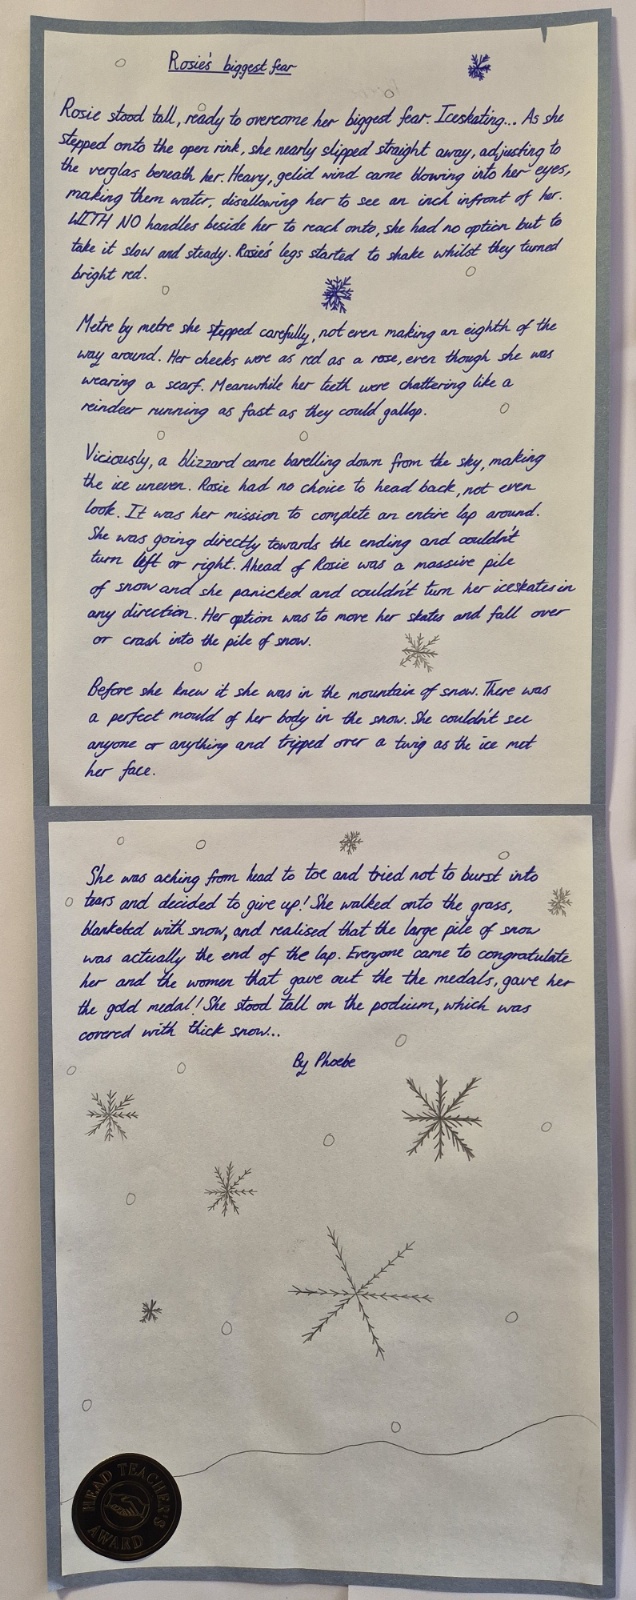 Rosie's biggest fear
Rosie stood tall, ready to overcome her biggest fear. Iceskating... As she
stepped onto the open rink, she nearly slipped straight away, adjusting to
the verglas beneath her. Heavy, gelid wind came blowing into her eyes,
making them water, disallowing her to see an inch infront of her.
WITH NO handles beside her to reach onto, she had no option but to
take it slow and steady. Rosie's legs started to shake whilst they turned
bright red.
Metre by metre she stepped carefully, not even making an eighth of the
way around. Her cheeks were as red as a rose, even though she was
wearing a scarf. Meanwhile her teeth were chattering like a
reindeer running as fast as they could gallop.
Viciously, a blizzard came barelling down from the sky, making
the ice uneven. Rosie had no choice to head back, not even
look. It was her mission to complete an entire lap around.
She was going directly towards the ending and couldn't
turn left or right. Ahead of Rosie was a massive pile
of snow and she panicked and couldn't turn her iceskates in
any direction. Her option was to move her skates and fall over
or crash into the pile of snow.
Before she knew it she was in the mountain of snow. There was
a perfect mould of her body in the snow. She couldn't see
anyone or anything and tripped over a twig as the ice met
her face.
She was aching from head to toe and tried not to burst into
tears and decided to give up! She walked onto the grass,
blanketed with snow, and realised that the large pile of snow
was actually the end of the lap. Everyone came to congratulate
her and the women that gave out the the medals, gave her
the gold medal! She stood tall on the podium, which was
covered with thick snow...
By Phoebe
HEAD TEACHER'S
AWARD